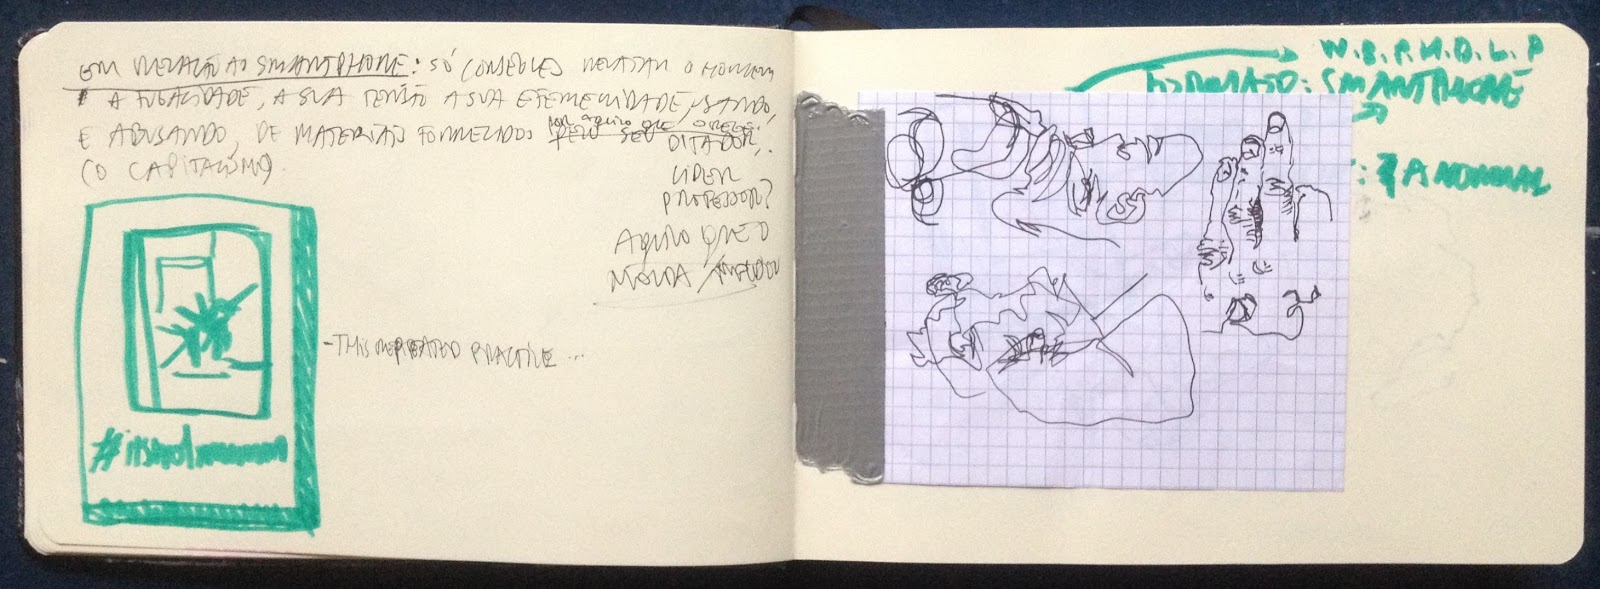 EM RELAÇÃO AO SMARTPHONE: SÓ CONSEGUES RELATAR O HOMEM
A FUGACIDADE, A SUA TENSÃO A SUA EFEMERIDADE, USANDO,
E ABUSANDO, DE MATERIAIS FORNECIDOS PELO SEU
por aquilo que o rege.
DITADOR,
(O CAPITALISMO).
LÍDER
PROFESSOR?
AQUILO QUE O
MOLDA
-THIS REPEATED PRACTICE ...
W.B.P.H.D.L.P
FORMATO: SMARTPHONE
: A NORMAL